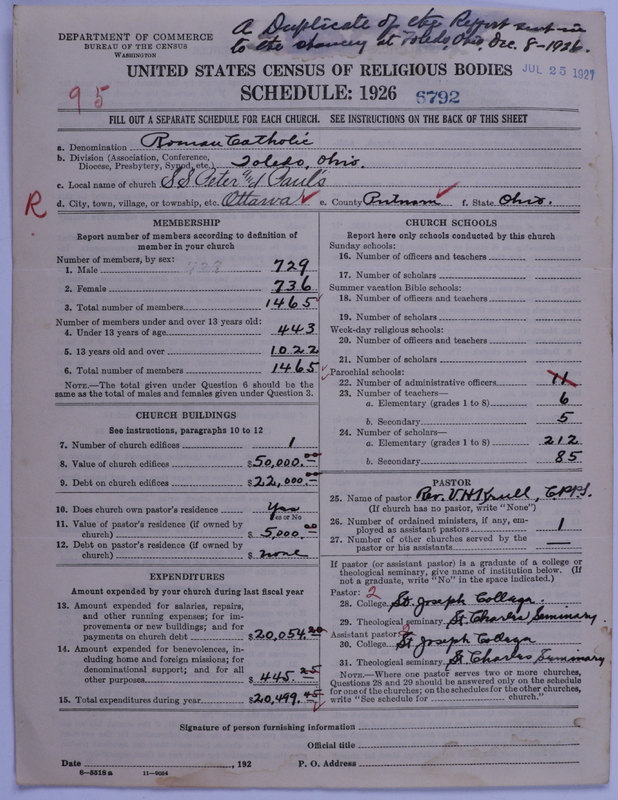 A Duplicate of the Report sent in
to the chancery at Toledo, Ohio, Dec. 8-1926.
DEPARTMENT OF COMMERCE
BUREAU OF THE CENSUS
WASHINGTON
UNITED STATES CENSUS OF RELIGIOUS BODIES
JUL 25 1927
SCHEDULE: 1926
95
6792
FILL OUT A SEPARATE SCHEDULE FOR EACH CHURCH. SEE INSTRUCTIONS ON THE BACK OF THIS SHEET
a. Denomination Roman Catholic
b. Division (Association, Conference,
Diocese, Presbytery, Synod, etc.) Toledo, Ohio.
c. Local name of church SS Peter and Paul's
R
d. City, town, village, or township, etc. Ottawa e. County Putnam f. State Ohio.
MEMBERSHIP
Report number of members according to definition of
member in your church
Number of members, by sex:
1. Male 728 729
2. Female 736
3. Total number of members 1465
Number of members under and over 13 years old:
4. Under 13 years of age 443
5. 13 years old and over 1022
6. Total number of members 1465
NOTE.—The total given under Question 6 should be the
same as the total of males and females given under Question 3.
CHURCH BUILDINGS
See instructions, paragraphs 10 to 12
7. Number of church edifices 1
8. Value of church edifices $50,000.00
9. Debt on church edifices $22,000.00
10. Does church own pastor's residence Yes
Yes or No
11. Value of pastor's residence (if owned by
church) $5,000.00
12. Debt on pastor's residence (if owned by
church) $none
EXPENDITURES
Amount expended by your church during last fiscal year
13. Amount expended for salaries, repairs,
and other running expenses; for im-
provements or new buildings; and for
payments on church debt $20,054.20
14. Amount expended for benevolences, in-
cluding home and foreign missions; for
denominational support; and for all
other purposes $445.25
15. Total expenditures during year $20,499.45
CHURCH SCHOOLS
Report here only schools conducted by this church
Sunday schools:
16. Number of officers and teachers
17. Number of scholars
Summer vacation Bible schools:
18. Number of officers and teachers
19. Number of scholars
Week-day religious schools:
20. Number of officers and teachers
21. Number of scholars
Parochial schools:
22. Number of administrative officers 11
23. Number of teachers—
a. Elementary (grades 1 to 8) 6
b. Secondary 5
24. Number of scholars—
a. Elementary (grades 1 to 8) 212
b. Secondary 85
PASTOR
25. Name of pastor Rev. V. H. Krull, C.PP.S.
(If church has no pastor, write "None")
26. Number of ordained ministers, if any, em-
ployed as assistant pastors 1
27. Number of other churches served by the
pastor or his assistants —
If pastor (or assistant pastor) is a graduate of a college or
theological seminary, give name of institution below. (If
not a graduate, write "No" in the space indicated.)
Pastor: 2
28. College St. Joseph College.
29. Theological seminary St. Charles Seminary.
Assistant pastor: 2
30. College St. Joseph College
31. Theological seminary St. Charles Seminary
NOTE.—Where one pastor serves two or more churches,
Questions 28 and 29 should be answered only on the schedule
for one of the churches; on the schedules for the other churches,
write "See schedule for church."
Signature of person furnishing information
Official title
Date , 192 P. O. Address
8-5518a 11-9054